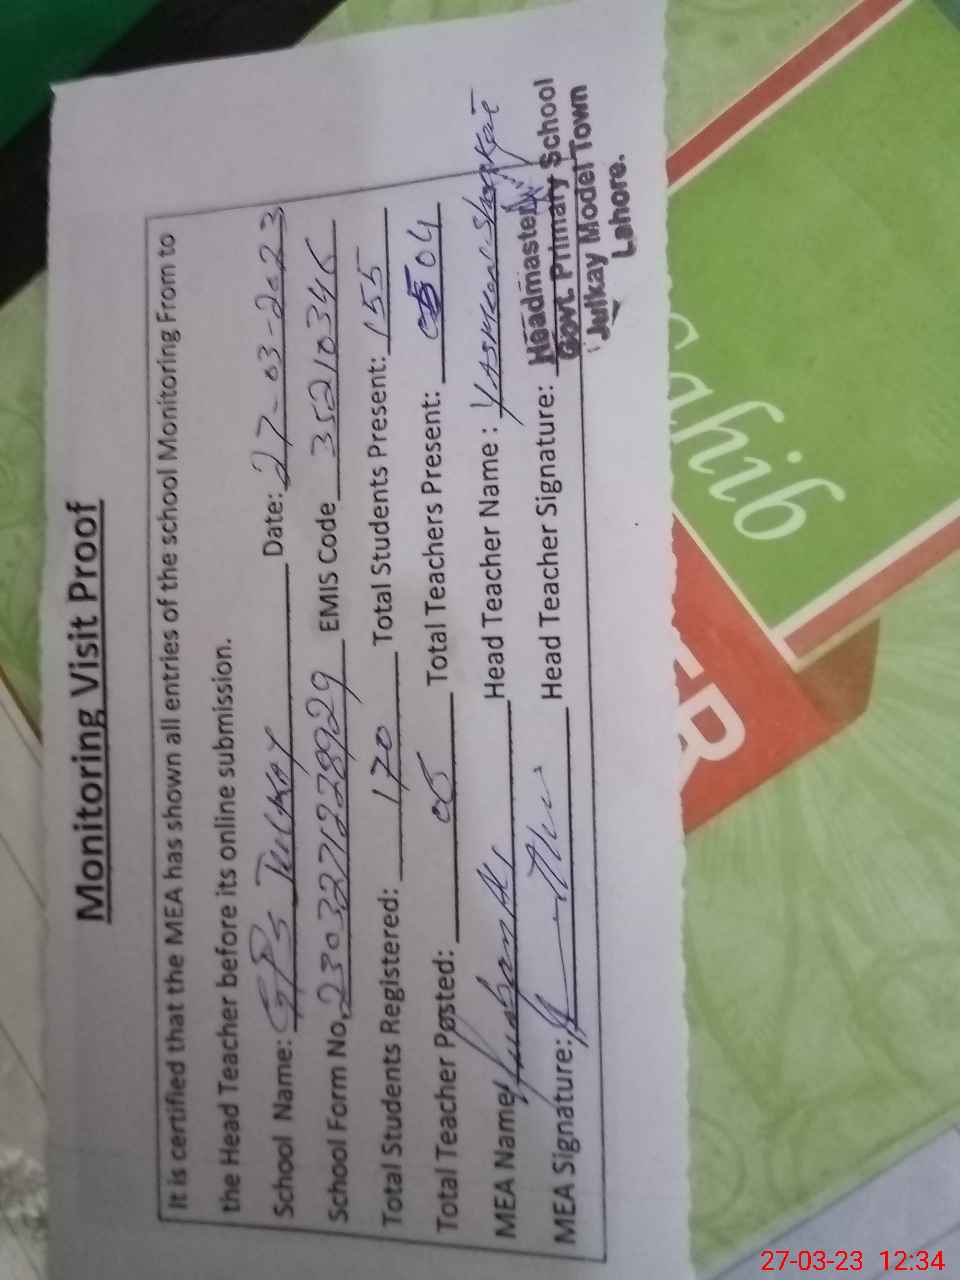 Monitoring Visit Proof
It is certified that the MEA has shown all entries of the school Monitoring From to
the Head Teacher before its online submission.
School Name: GPS Julkay Date: 27-03-2023
School Form No. 2303271228929 EMIS Code 35210346
Total Students Registered: 170 Total Students Present: 155
Total Teacher Posted: 05 Total Teachers Present: 04
MEA Name: Head Teacher Name : Yasmeen Shoukat
MEA Signature: Head Teacher Signature:
Headmaster
Govt. Primary School
Julkay Model Town
Lahore.
Sahib
ER
27-03-23 12:34